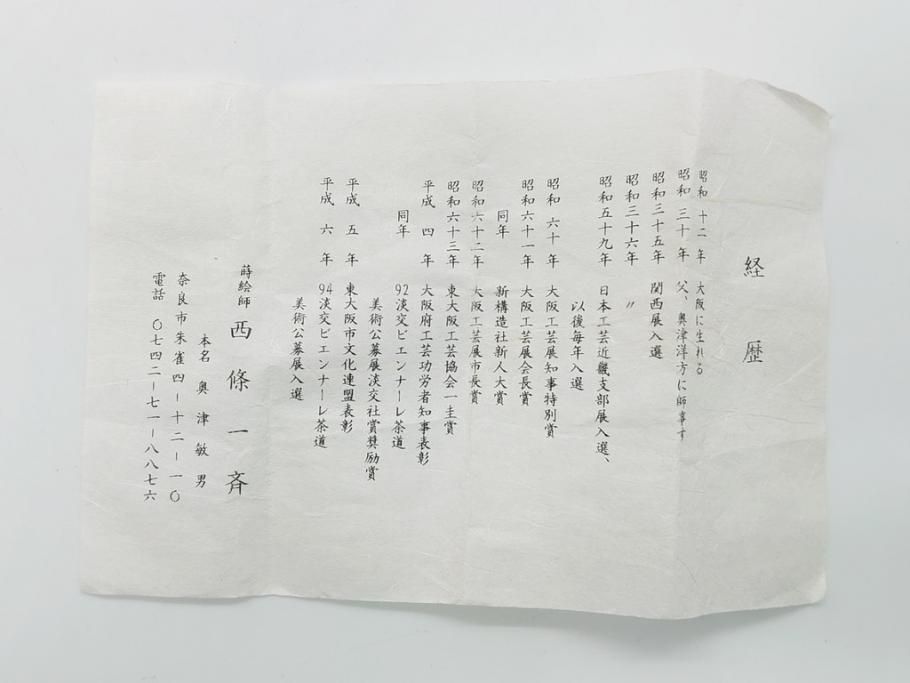 経歴
昭和 十二 年 大阪に生れる
昭和 三十 年 父、奥津洋方に師事す
昭和三十五年 関西展入選
昭和三十六年 〃
昭和五十九年 日本工芸近畿支部展入選、
以後毎年入選
昭和 六十 年 大阪工芸展知事特別賞
昭和六十一年 大阪工芸展会長賞
同年 新構造社新人大賞
昭和六十二年 大阪工芸展市長賞
昭和六十三年 東大阪工芸協会一圭賞
平成 四 年 大阪府工芸功労者知事表彰
同年 92淡交ビエンナーレ茶道
美術公募展淡交社賞奨励賞
平成 五 年 東大阪市文化連盟表彰
平成 六 年 94淡交ビエンナーレ茶道
美術公募展入選
蒔絵師 西條一斉
本名 奥津敏男
奈良市朱雀四ー十二ー一〇
電話 〇七四二ー七一ー八八七六